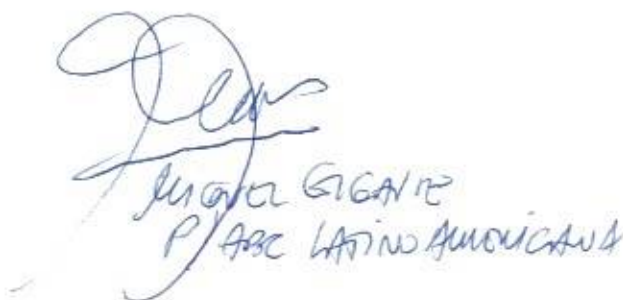 MIGUEL GIGANTE
P/ ABC LATINOAMERICANA